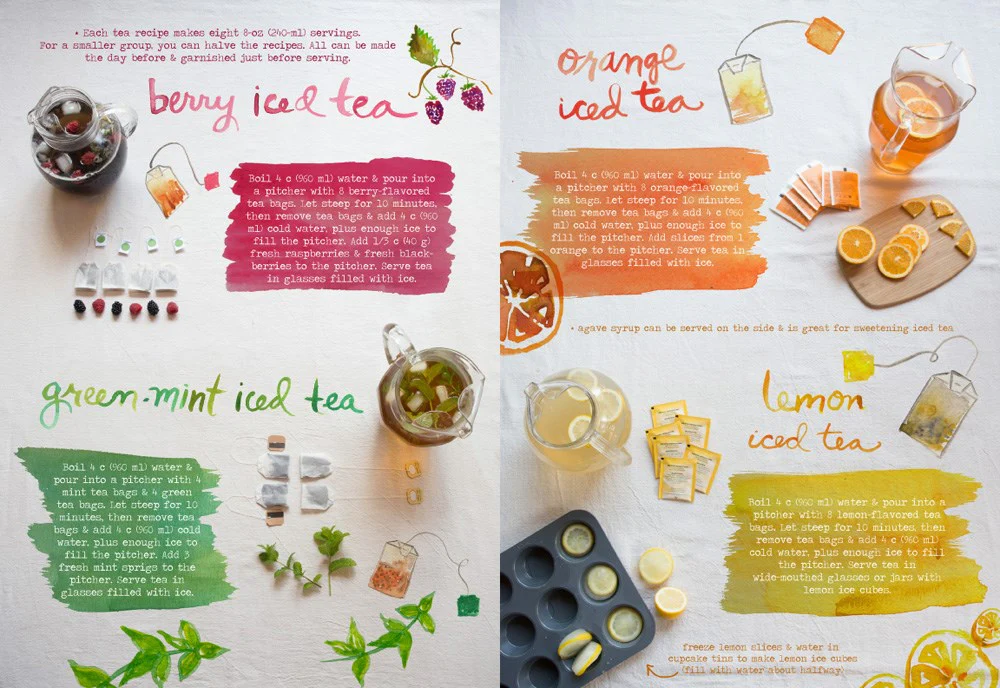 • Each tea recipe makes eight 8-oz (240-ml) servings.
For a smaller group, you can halve the recipes. All can be made
the day before & garnished just before serving.
berry iced tea
Boil 4 c (960 ml) water & pour into
a pitcher with 8 berry-flavored
tea bags. Let steep for 10 minutes,
then remove tea bags & add 4 c (960
ml) cold water, plus enough ice to
fill the pitcher. Add 1/3 c (40 g)
fresh raspberries & fresh black-
berries to the pitcher. Serve tea
in glasses filled with ice.
green-mint iced tea
Boil 4 c (960 ml) water &
pour into a pitcher with 4
mint tea bags & 4 green
tea bags. Let steep for 10
minutes, then remove tea
bags & add 4 c (960 ml) cold
water, plus enough ice to
fill the pitcher. Add 3
fresh mint sprigs to the
pitcher. Serve tea in
glasses filled with ice.
orange
iced tea
Boil 4 c (960 ml) water & pour into
a pitcher with 8 orange-flavored
tea bags. Let steep for 10 minutes,
then remove tea bags & add 4 c (960
ml) cold water, plus enough ice to
fill the pitcher. Add slices from 1
orange to the pitcher. Serve tea in
glasses filled with ice.
• agave syrup can be served on the side & is great for sweetening iced tea
lemon
iced tea
Boil 4 c (960 ml) water & pour into a
pitcher with 8 lemon-flavored tea
bags. Let steep for 10 minutes, then
remove tea bags & add 4 c (960 ml)
cold water, plus enough ice to fill
the pitcher. Serve tea in
wide-mouthed glasses or jars with
lemon ice cubes.
freeze lemon slices & water in
cupcake tins to make lemon ice cubes
(fill with water about halfway)